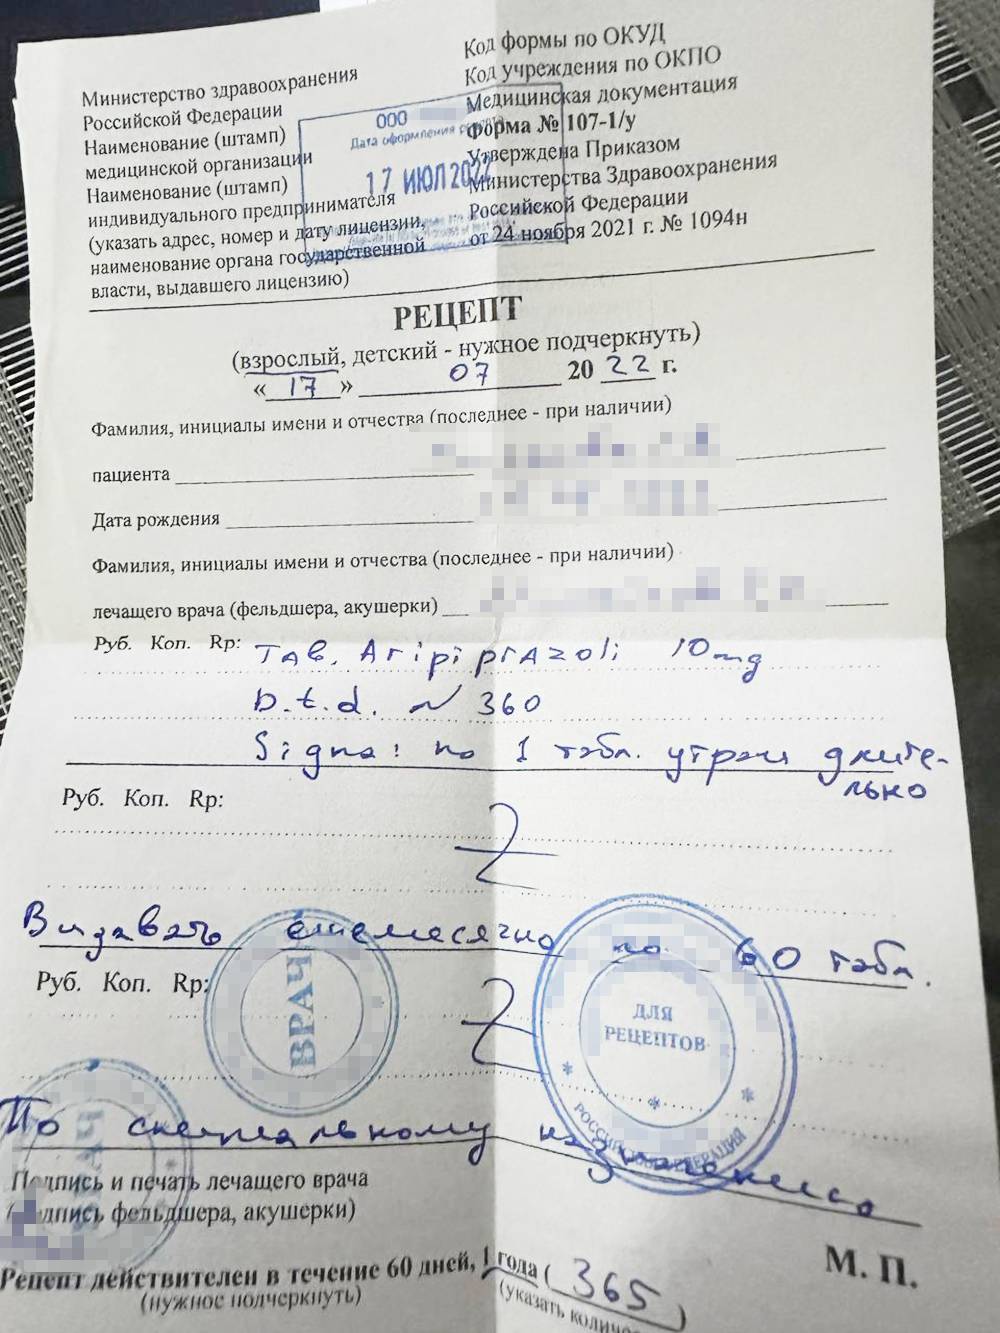 Министерство здравоохранения
Российской Федерации
Наименование (штамп)
медицинской организации
Наименование (штамп)
индивидуального предпринимателя
(указать адрес, номер и дату лицензии,
наименование органа государственной
власти, выдавшего лицензию)
Код формы по ОКУД
Код учреждения по ОКПО
Медицинская документация
Форма № 107-1/у
Утверждена Приказом
Министерства Здравоохранения
Российской Федерации
от 24 ноября 2021 г. № 1094н
ООО
Дата оформления
17 ИЮЛ 2022
РЕЦЕПТ
(взрослый, детский - нужное подчеркнуть)
« 17 » 07 20 22 г.
Фамилия, инициалы имени и отчества (последнее - при наличии)
пациента
Дата рождения
Фамилия, инициалы имени и отчества (последнее - при наличии)
лечащего врача (фельдшера, акушерки)
Руб. Коп. Rp: Tab. Aripiprazoli 10 mg
D.t.d. N 360
Signa: по 1 табл. утром длите-
льно
Руб. Коп. Rp:
Z
Выдавать ежемесячно по 60 табл.
Руб. Коп. Rp:
Z
ВРАЧ
ДЛЯ
РЕЦЕПТОВ
РОССИЙСКАЯ ФЕДЕРАЦИЯ
По специальному назначению
ВРАЧ
Подпись и печать лечащего врача
(подпись фельдшера, акушерки)
М. П.
Рецепт действителен в течение 60 дней, 1 года ( 365 )
(нужное подчеркнуть)
(указать количес